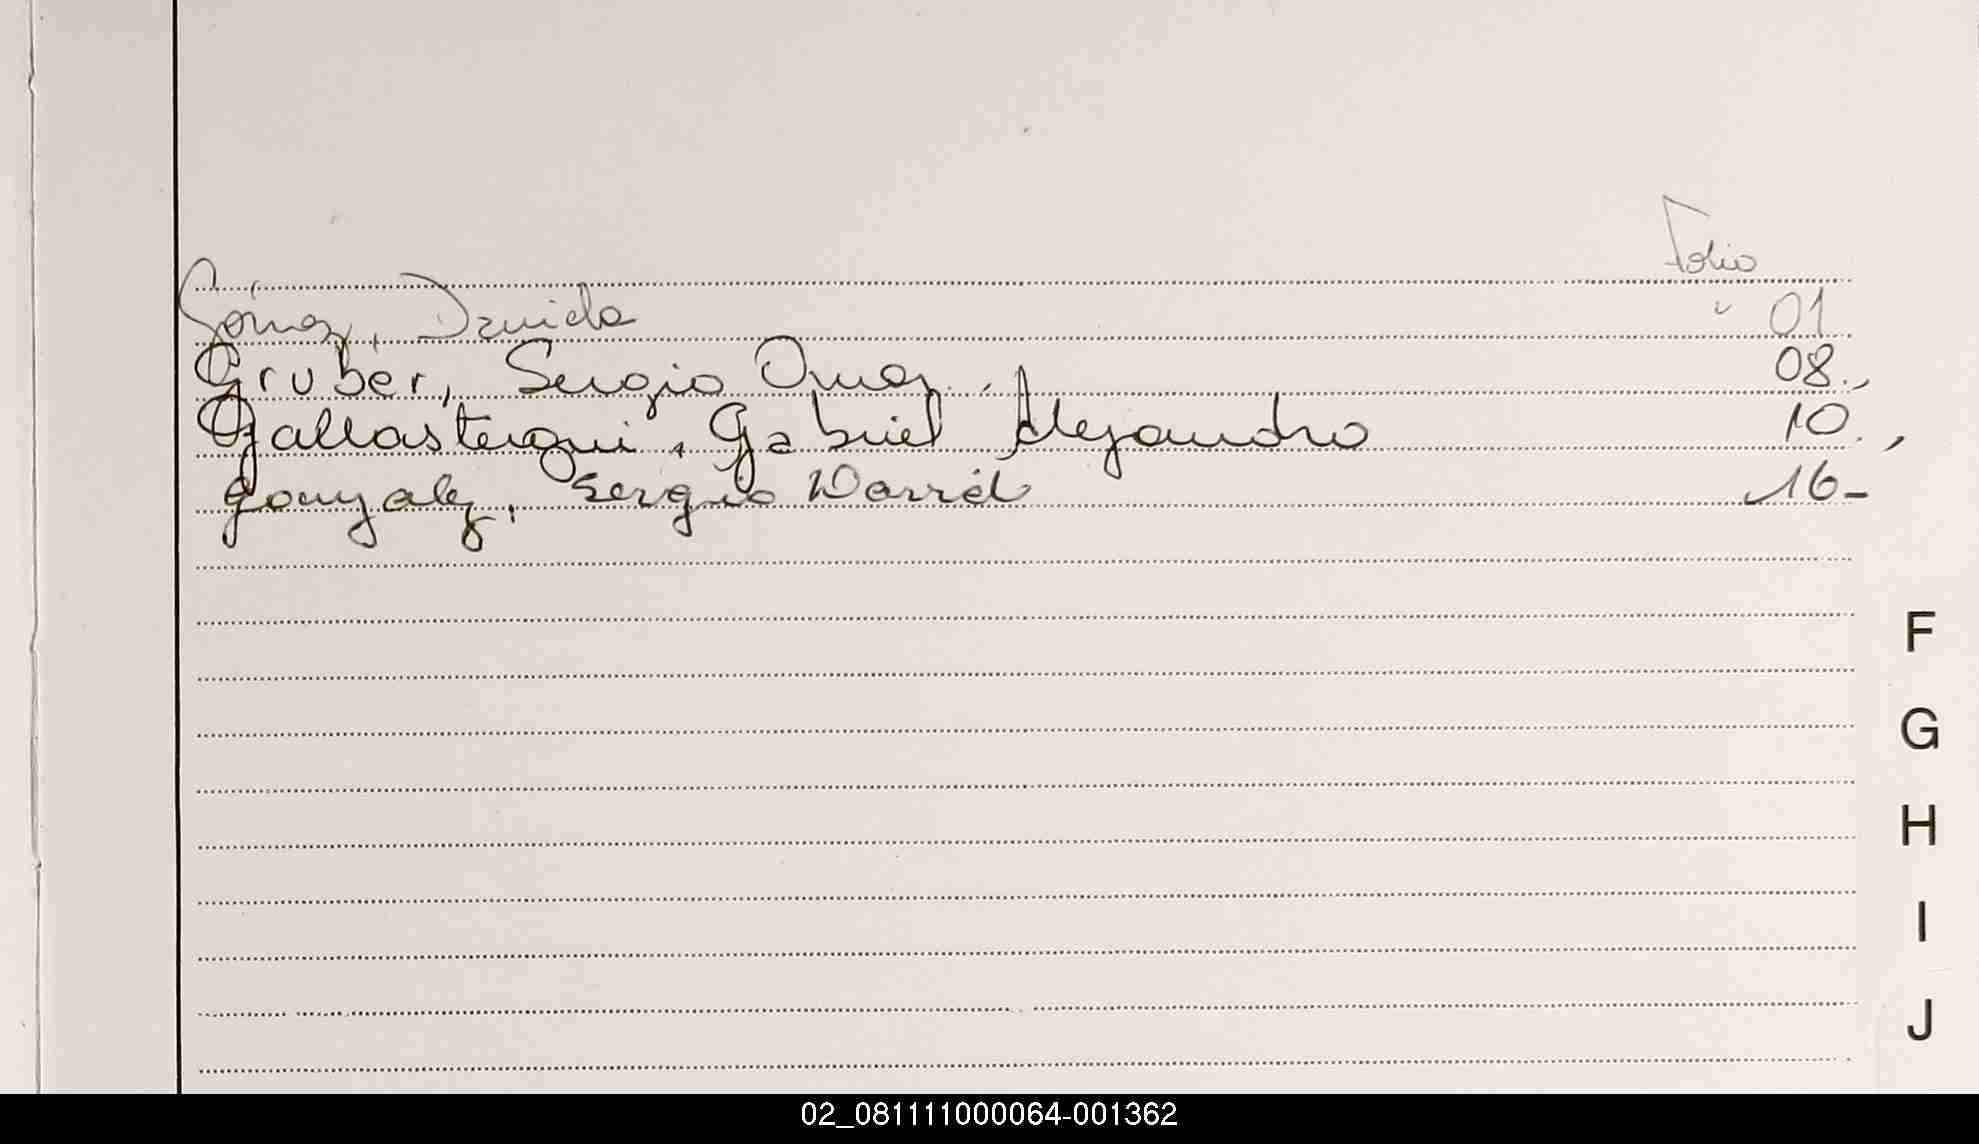 Folio
Gómez, Daniela " 01
Gruber, Sergio Omar. 08.,
Gallastegui, Gabriel Alejandro 10.,
gonzalez, Sergio David 16-
F
G
H
I
J
02_081111000064-001362